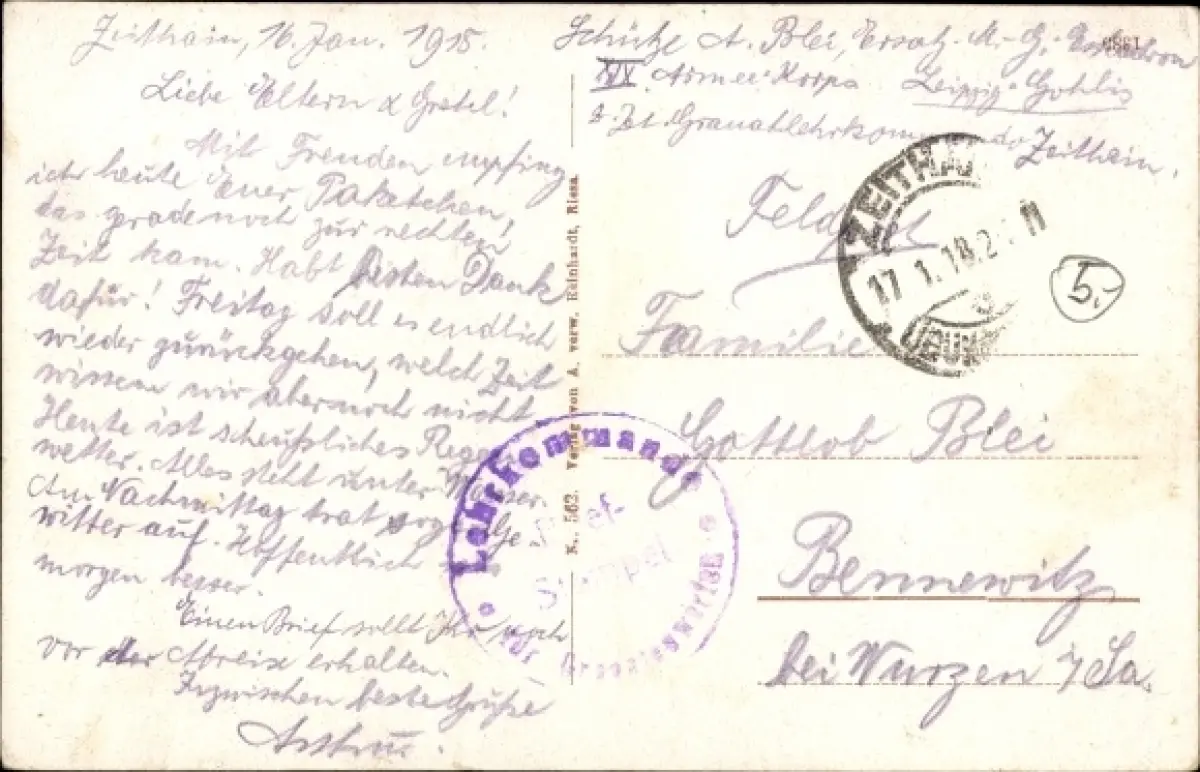 Zeithain, 16. Jan. 1918.
Liebe Eltern & Gretel!
Mit Freuden empfing
ich heute Euer Paketchen,
das gerade noch zur rechten
Zeit kam. Habt besten Dank
dafür! Freitag soll es endlich
wieder zurückgehen, welch Zeit
wissen wir aber noch nicht
Heute ist scheußliches Regen-
wetter. Alles steht unter Wasser.
Am Nachmittag trat sogar Ge-
witter auf. Hoffentlich
morgen besser.
Einen Brief sollt Ihr noch
vor der Abreise erhalten.
Inzwischen beste Grüße
Arthur.
K. 562. Verlag von A. verw. Reinhardt, Riesa.
Schütze A. Blei, Ersatz-M.-G.-Eskadron
XIX. Armee-Korps Leipzig-Gohlis
z. Zt. Granatlehrkommando Zeithain.
Feldpost
ZEITHAIN
17.1.18.2
5.-
Familie
Gottlob Blei
Bennewitz
bei Wurzen i/Sa.
Lehrkommando
Brief-
Stempel
für